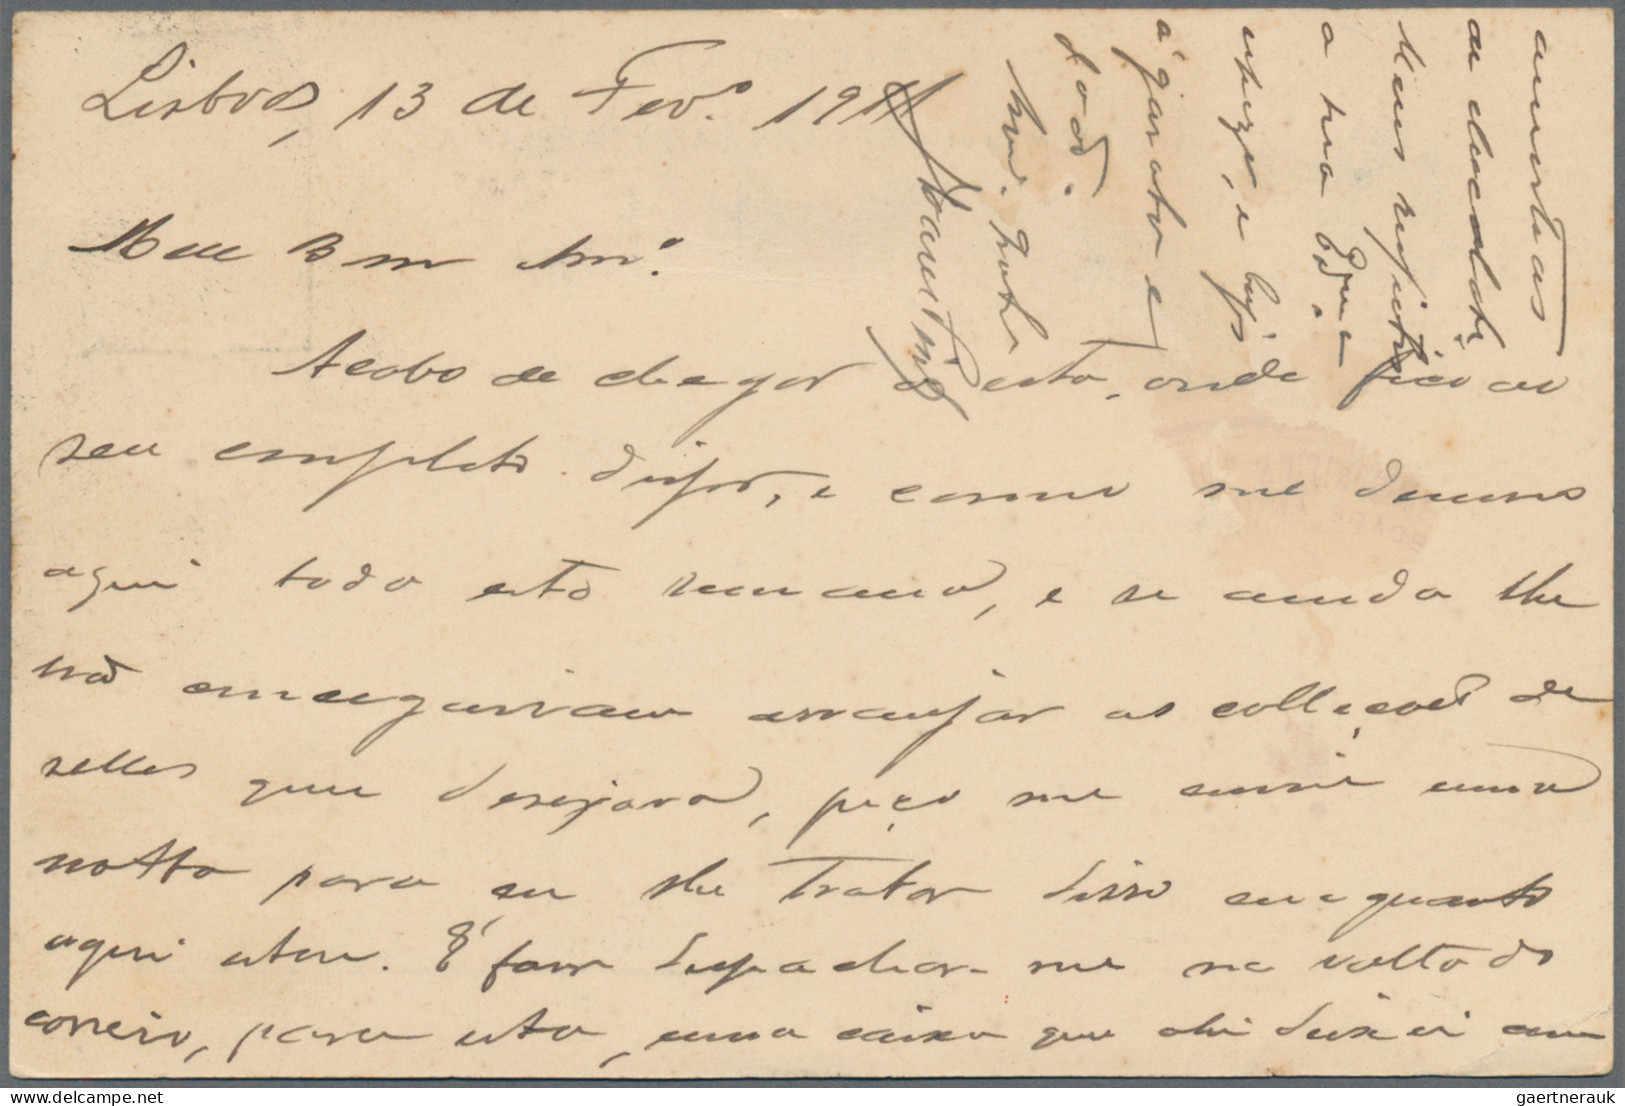 Lisboa, 13 de Fev.º 1911
Meu Bom Am.º
Acabo de chegar a esta, onde fico ao
seu completo dispôr, e como me demoro
aqui toda esta semana, e se ainda lhe
não conseguiram arranjar as collecções de
sellos que desejava, peço me envie uma
notta para eu lhe tratar disso emquanto
aqui estou. É favor despachar-me na volta do
correio, para esta, uma caixa que ahi deixei com
amostras
de chocolate.
Meus respeitos
a sua
e
garota e
delcampe.net
gaertnerauk